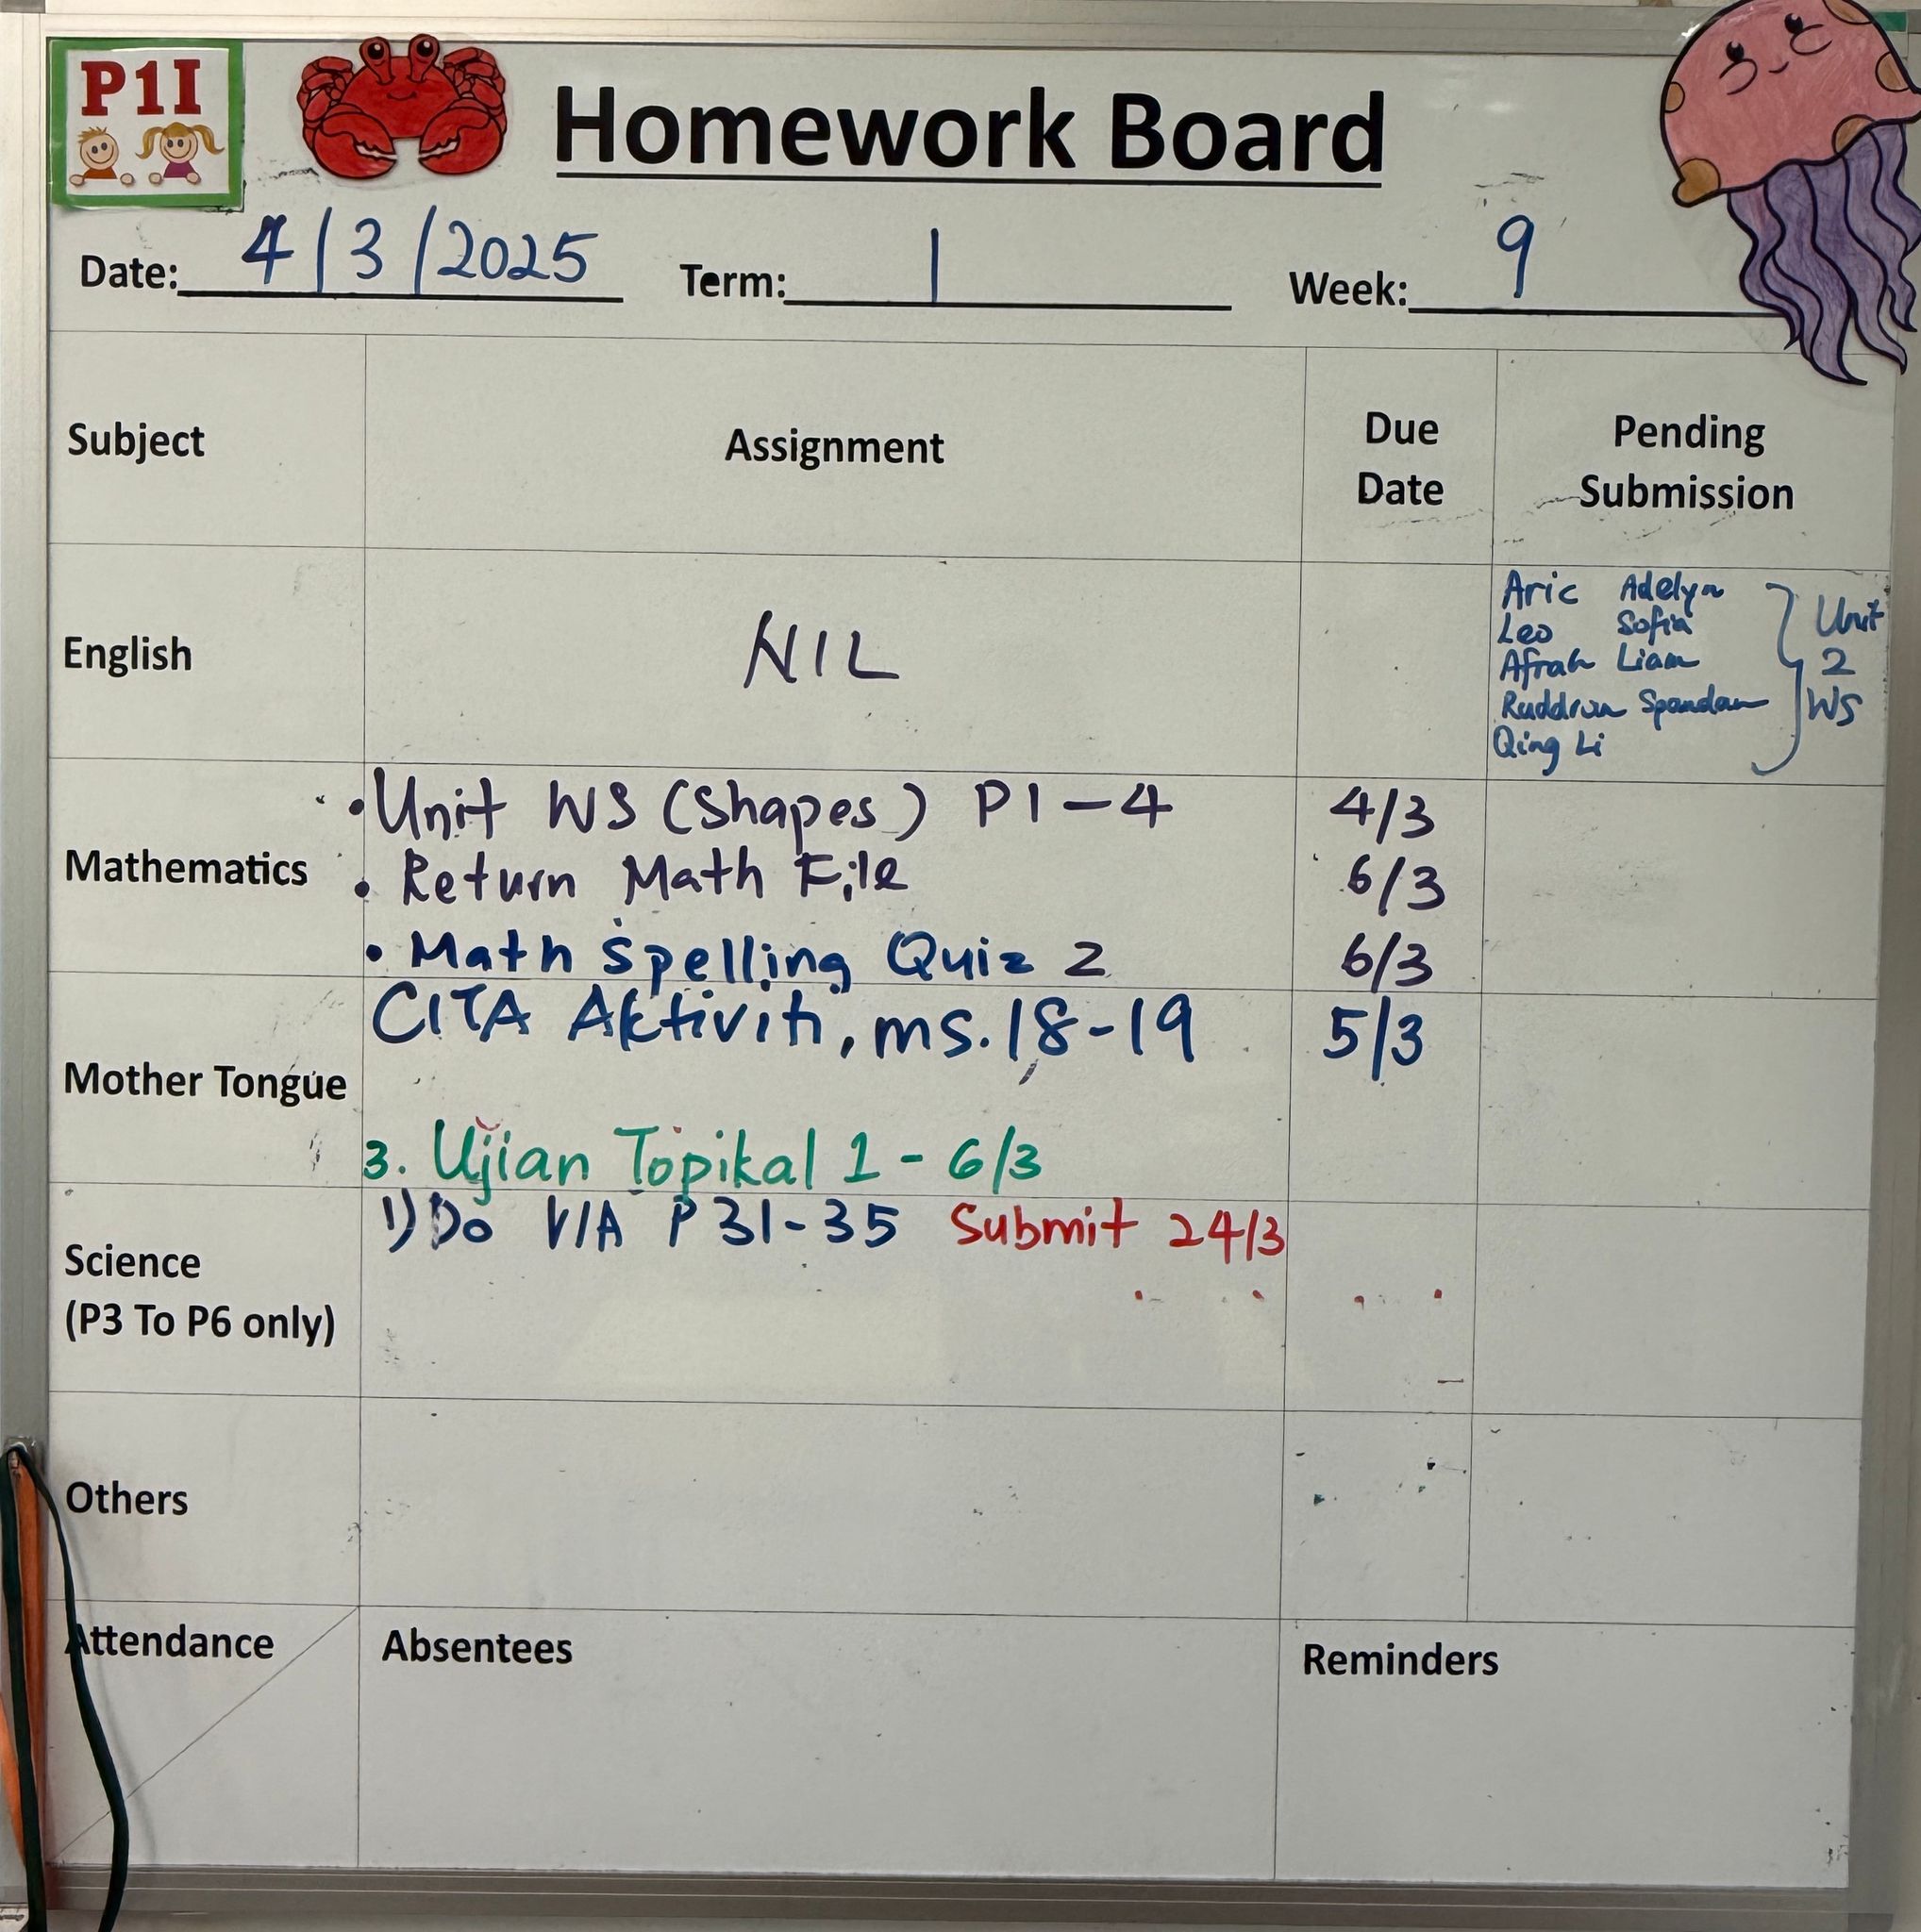 P1I
Homework Board
Date: 4/3/2025 Term: 1 Week: 9
Subject Assignment Due Date Pending Submission
English NIL
Aric Adelyn
Leo Sofia
Afrah Liam
Spandan
Qing Li
Unit
2
WS
Mathematics
• Unit WS (Shapes) P1-4 4/3
• Return Math File 6/3
• Math Spelling Quiz 2 6/3
Mother Tongue
CITA Aktiviti, ms. 18-19 5/3
3. Ujian Topikal 1 - 6/3
Science
(P3 To P6 only)
1) Do V/A P 31-35 Submit 24/3
Others
Attendance Absentees Reminders